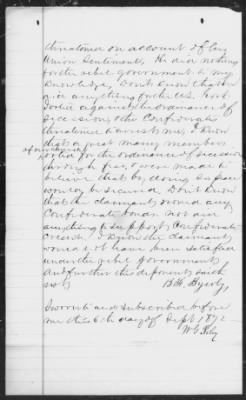 threatened on account of his
Union Sentiments, He did nothing
for the rebel government to my
knowledge, Don't know that he
give anything for the U.S. Govt.
I voted against the ordinance of
secession, the Confederates
threatened to arrest me. I know
that a great many members
of our church voted for the ordinance of secession
through fear, & were made to
believe that by doing so peace
would be secured. Don't know
that the claimant owned any
Confederate bonds nor did
anything to support Confederate
credit. I know claimant
would not have been satisfied
under the rebel government
And further this deponent saith
not
B.H. Byerly,
Sworn to and subscribed before
me this 6th day of Sept 1872